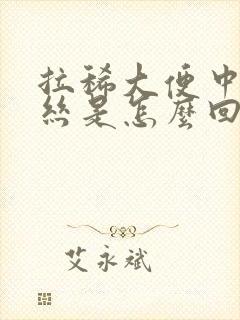 拉稀大便中
絲是怎麼回
艾永斌